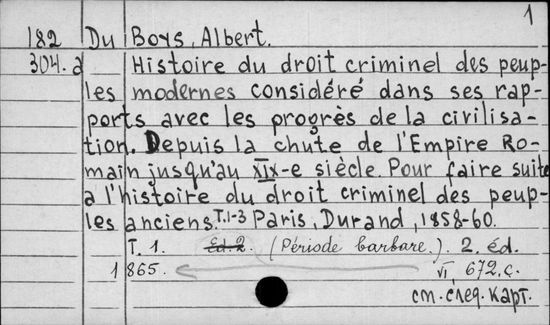 1
182 Du Boys, Albert.
304.a Histoire du droit criminel des peup-
les modernes considéré dans ses rap-
ports avec les progrès de la civilisa-
tion. Depuis la chute de l'Empire Ro-
main jusqu'au XIX-e siècle. Pour faire suite
a l'histoire du droit criminel des peup-
les anciens. T.1-3 Paris, Durand, 1858-60.
T. 1. Ed. 2. (Période barbare.). 2. éd.
1865. VI, 672 с.
см. след. карт.